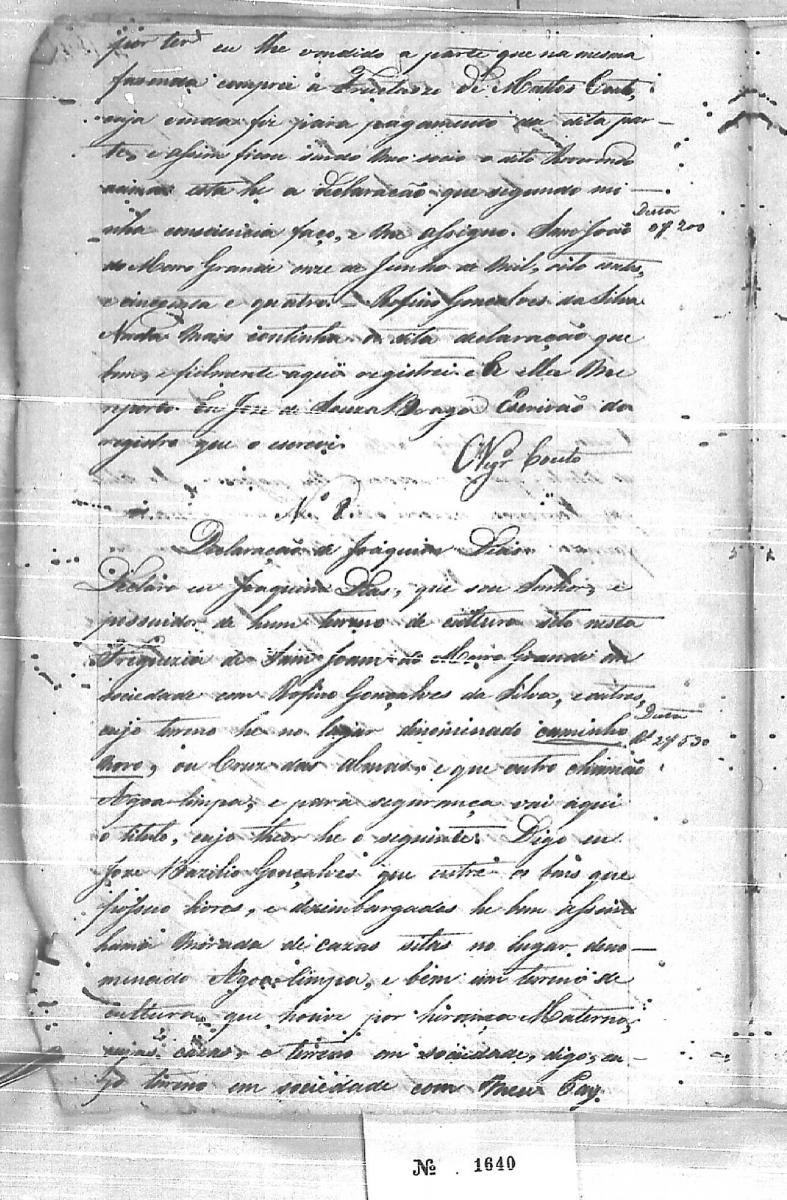 por ter eu lhe vendido a parte que na mesma
fazenda comprei a Fructuozo de Mattos Couto,
cuja venda foi para pagamento da dita par-
te, e assim ficou sendo meo socio o dito Reverendo
acima esta he a declaração que segundo mi-
nha consciencia faço, e me assigno. São João
do Morro Grande onze de Junho de mil, oito centos,
e cincoenta e quatro. Rofino Gonçalves da Silva
Nada mais continha a dita declaração que
bem, e fielmente aqui registrei e a ella me
reporto. Eu Joze de Souza Braga Escrivão do
registro que o escrevi.
Vigr.º Couto
Nº 8.
Declaração de Joaquim Dias
Declaro eu Joaquim Dias, que sou Senhor, e
possuidor de hum terreno de cultura sito nesta
Freguezia de Sam Joam do Morro Grande em
sociedade com Rofino Gonçalves da Silva, e outros,
cujo terreno he no lugar denominado caminho
novo, ou Cruz das Almas, e que outro chamão
Agoa limpa, e para segurança vai aqui
o titulo, cujo theor he o seguinte: Digo eu
Joze Bazilio Gonçalves que entre os bens que
possuo livres, e desembargados he bem assim
huma morada de cazas sitas no lugar deno-
minado Agoa-limpa, e bem um terreno de
cultura que houve por herança Materna,
cujas cazas, e terreno em sociedade, digo, cu-
jo terreno em sociedade com meu Pay.
Nº 1640